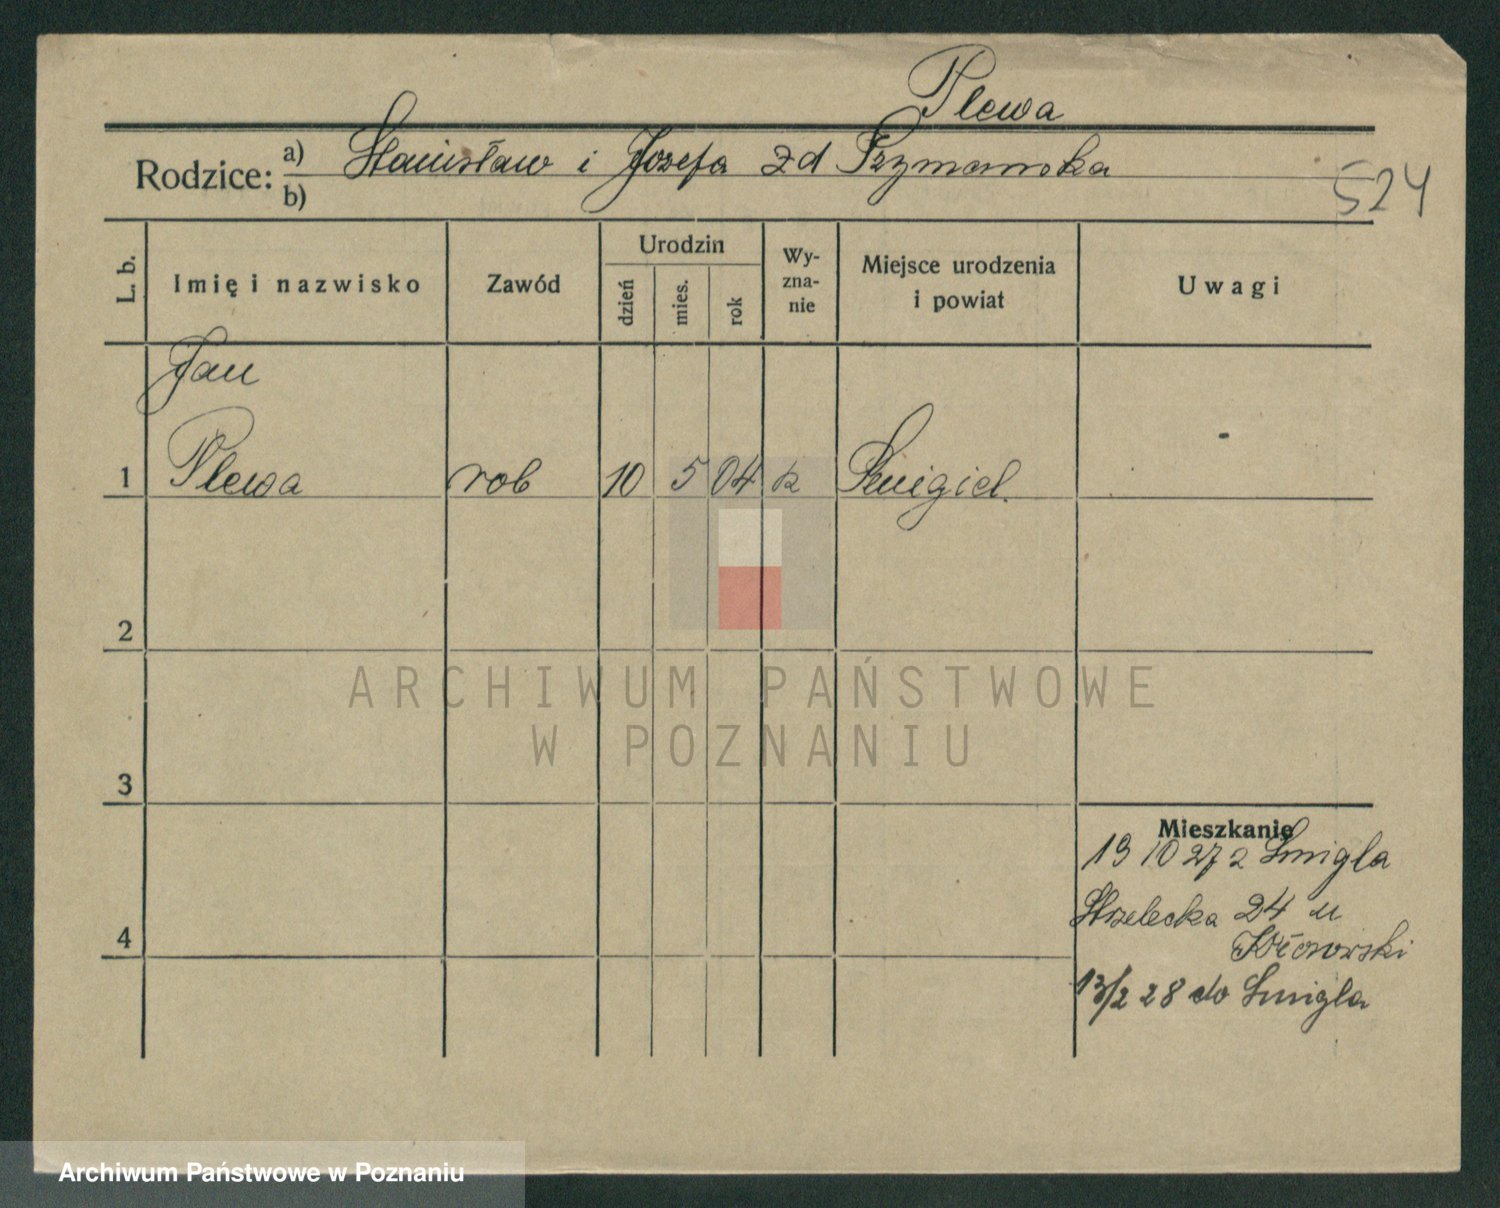 Plewa
Rodzice: a) Stanisław i Józefa zd Szymanska
b)
524
L. b.
Imię i nazwisko
Zawód
Urodzin
dzień
mies.
rok
Wy-
zna-
nie
Miejsce urodzenia
i powiat
Uwagi
Jan
1 Plewa rob 10 5 04 k Śmigiel.
2
3
4
Mieszkanie
19 10 27 z Śmigla
Strzelecka 24 u
13/2 28 do Śmigla
ARCHIWUM PAŃSTWOWE
W POZNANIU
Archiwum Państwowe w Poznaniu